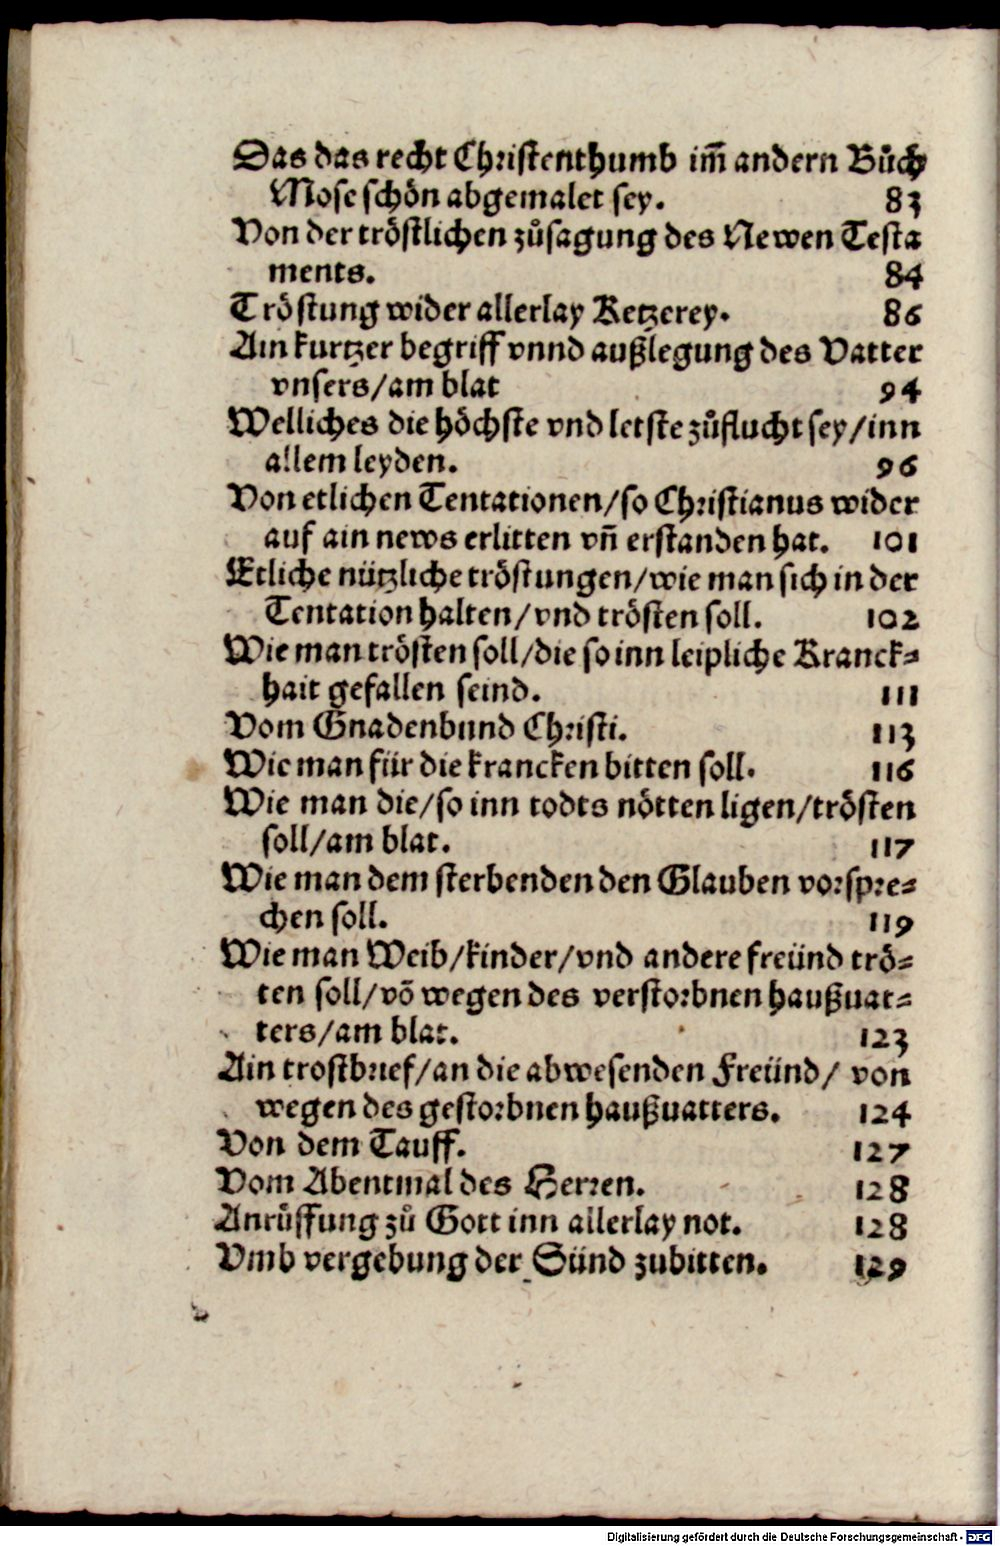 Das das recht Christenthumb im̃ andern Bůch
Mose schön abgemalet sey. 83
Von der tröstlichen zůsagung des Newen Testa
ments. 84
Tröstung wider allerlay Ketzerey. 86
Ain kurtzer begriff vnnd außlegung des Vatter
vnsers/am blat 94
Welliches die höchste vnd letste zůflucht sey/inn
allem leyden. 96
Von etlichen Tentationen/so Christianus wider
auf ain news erlitten vñ erstanden hat. 101
Etliche nützliche tröstungen/wie man sich in der
Tentation halten/vnd trösten soll. 102
Wie man trösten soll/die so inn leipliche Kranck⸗
hait gefallen seind. 111
Vom Gnadenbund Christi. 113
Wie man für die krancken bitten soll. 116
Wie man die/so inn todts nötten ligen/trösten
soll/am blat. 117
Wie man dem sterbenden den Glauben vorspre⸗
chen soll. 119
Wie man Weib/kinder/vnd andere freünd trö⸗
ten soll/võ wegen des verstorbnen haußuat⸗
ters/am blat. 123
Ain trostbrief/an die abwesenden Freünd/ von
wegen des gestorbnen haußuatters. 124
Von dem Tauff. 127
Vom Abentmal des Herren. 128
Anrůffung zů Gott inn allerlay not. 128
Vmb vergebung der Sünd zubitten. 129
Digitalisierung gefördert durch die Deutsche Forschungsgemeinschaft - DFG